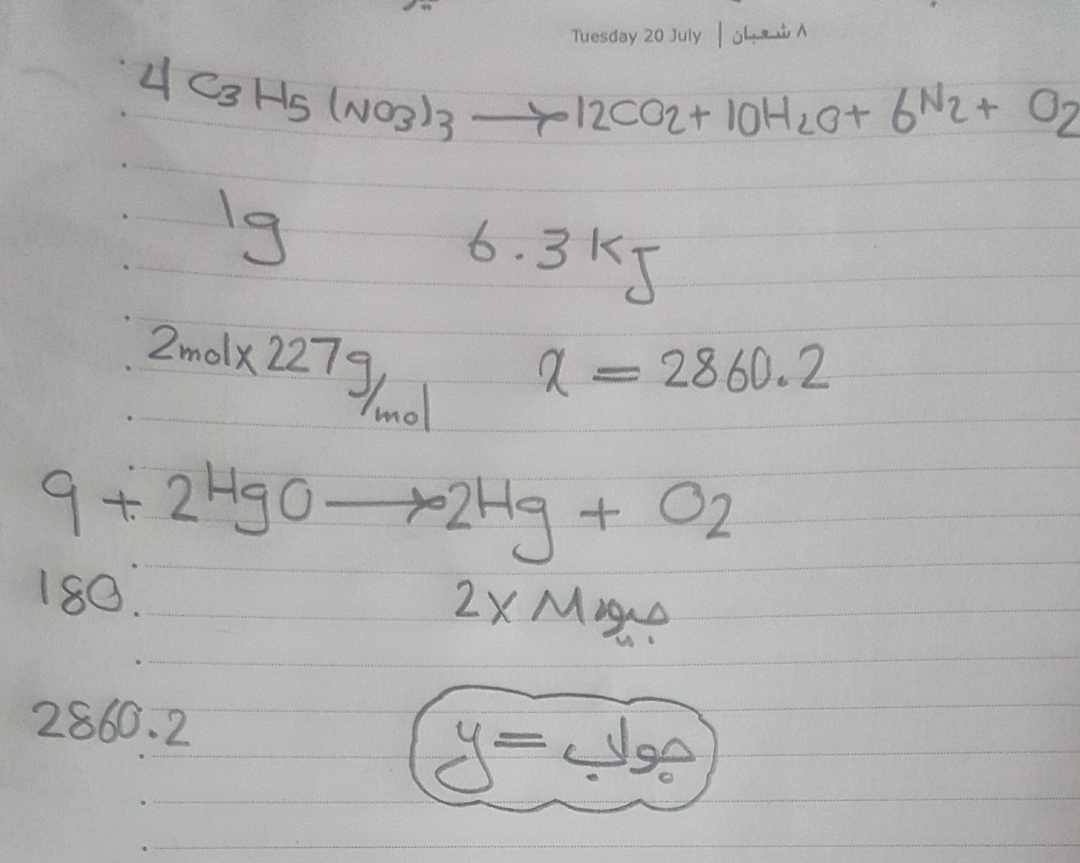 Tuesday 20 July | ٨ شعبان
4C3H5(NO3)3 → 12CO2 + 10H2O + 6N2 + O2
1g 6.3 kJ
2mol x 227g/mol x = 2860.2
q + 2HgO → 2Hg + O2
180. 2 x M جیوه
2860.2 y = جواب